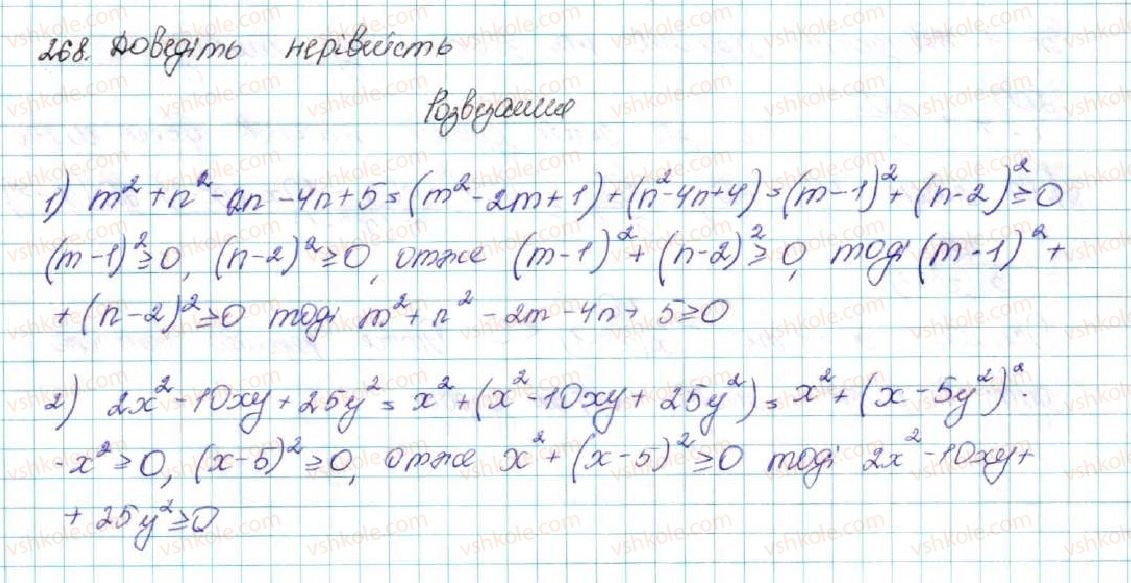 268. Доведіть нерівність
Розвезання
1) m² + n² - 2n - 4n + 5 = (m² - 2m + 1) + (n² - 4n + 4) = (m - 1)² + (n - 2)² ≥ 0
(m - 1)² ≥ 0, (n - 2)² ≥ 0, отже (m - 1)² + (n - 2)² ≥ 0, тоді (m - 1)² +
+ (n - 2)² ≥ 0 тоді m² + n² - 2m - 4n + 5 ≥ 0
2) 2x² - 10xy + 25y² = x² + (x² - 10xy + 25y²) = x² + (x - 5y²)².
- x² ≥ 0, (x - 5)² ≥ 0, отже x² + (x - 5)² ≥ 0 тоді 2x² - 10xy +
+ 25y² ≥ 0
vshkole.com